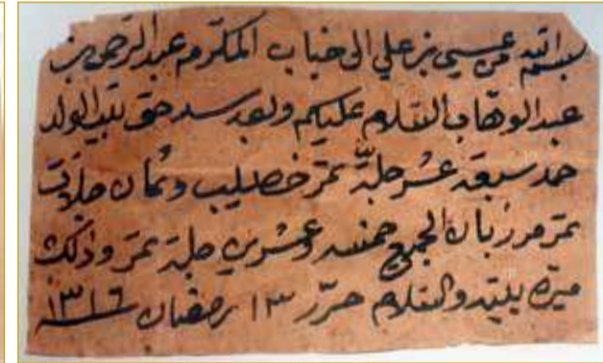 بسم الله من عيسى بن علي الى جناب المكرم عبد الرحمن بن
عبد الوهاب السلام عليكم وبعد سد حق بيد الولد
حمد سبعة عشر جلة تمر خصليب وثمان جلات
تمر مرزبان الجميع خمسة وعشرين جلة تمر وذلك
ميرة والسلام حرر ١٣ رمضان ١٣١٦